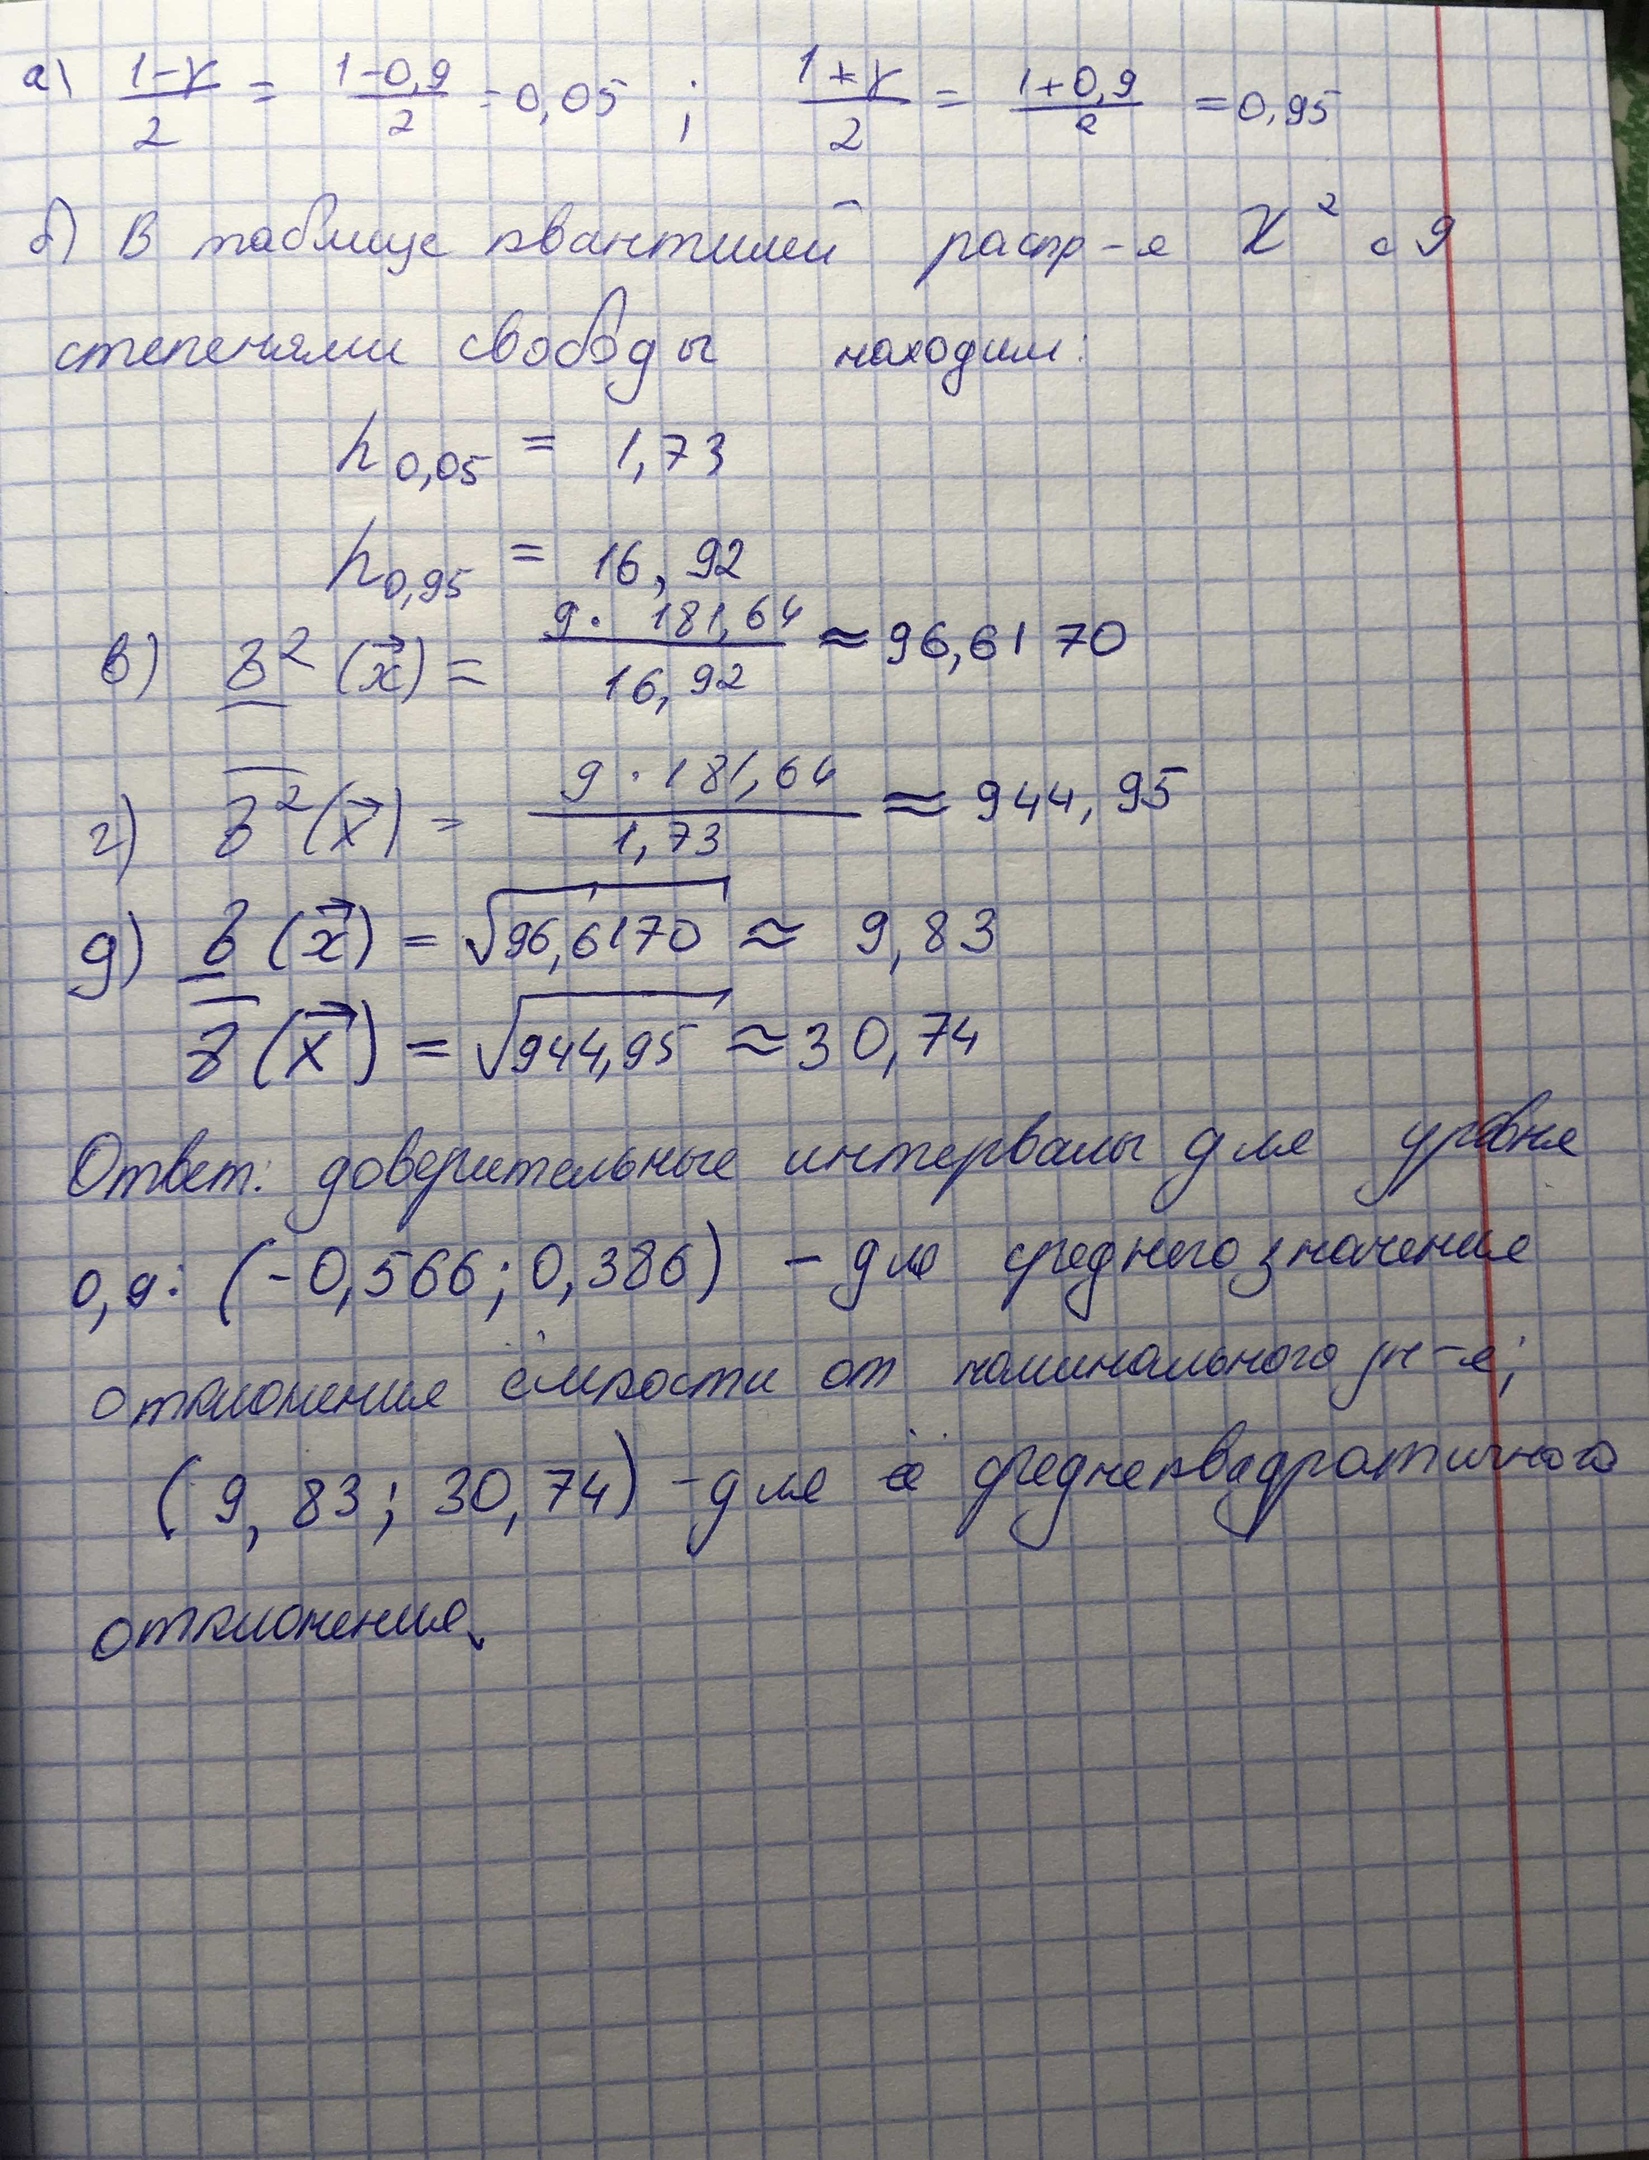 а) (1-γ)/2 = (1-0,9)/2 = 0,05 ; (1+γ)/2 = (1+0,9)/2 = 0,95
б) В таблице квантилей распр-я χ² с 9
степенями свободы находим:
h0,05 = 1,73
h0,95 = 16,92
в) σ²(x⃗) = (9 · 181,64)/16,92 ≈ 96,6170
г) σ²(x⃗) = (9 · 181,64)/1,73 ≈ 944,95
д) σ(x⃗) = √96,6170 ≈ 9,83
σ(x⃗) = √944,95 ≈ 30,74
Ответ: доверительные интервалы для уровня
0,9: (-0,566; 0,386) – для среднего значения
отклонения ёмкости от номинального зн-я;
(9,83; 30,74) – для её среднеквадратичного
отклонения.